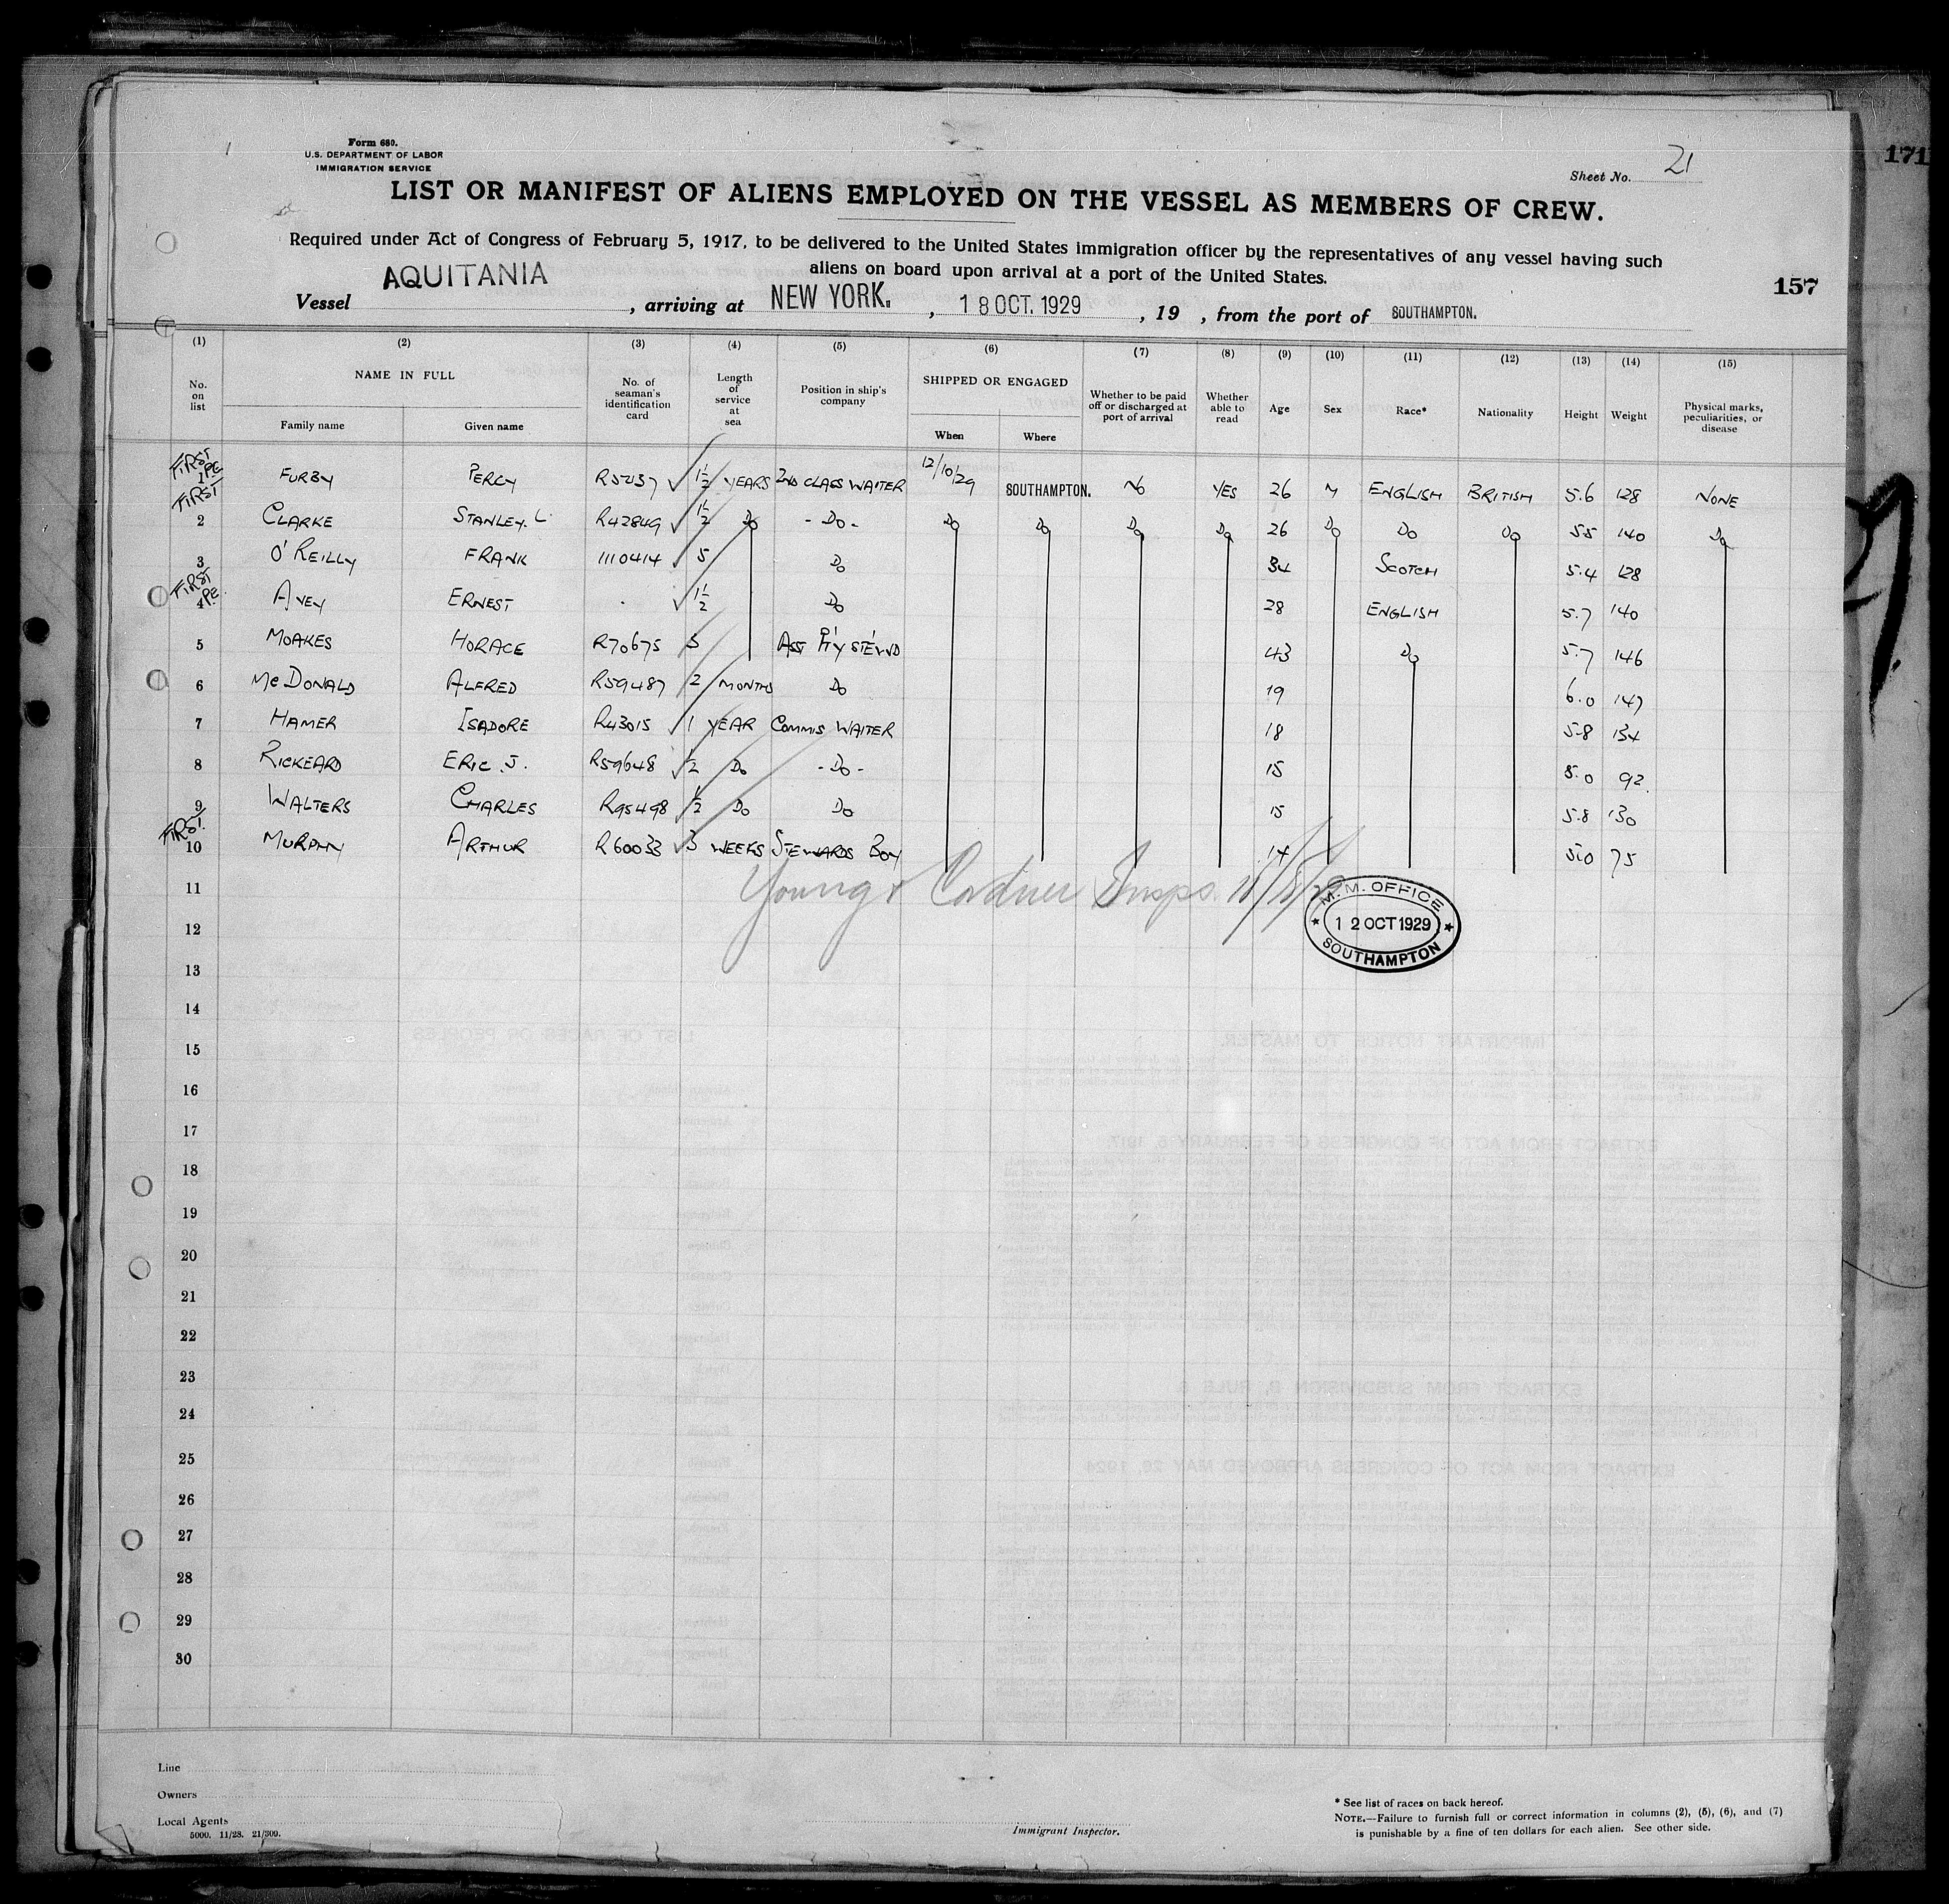 171
Form 680.
U.S. DEPARTMENT OF LABOR
IMMIGRATION SERVICE
Sheet No. 21
LIST OR MANIFEST OF ALIENS EMPLOYED ON THE VESSEL AS MEMBERS OF CREW.
Required under Act of Congress of February 5, 1917, to be delivered to the United States immigration officer by the representatives of any vessel having such
aliens on board upon arrival at a port of the United States.
157
Vessel AQUITANIA, arriving at NEW YORK., 18 OCT. 1929, 19 , from the port of SOUTHAMPTON.
(1) (2) (3) (4) (5) (6) (7) (8) (9) (10) (11) (12) (13) (14) (15)
No. on list NAME IN FULL Family name Given name No. of seaman's identification card Length of service at sea Position in ship's company SHIPPED OR ENGAGED When Where Whether to be paid off or discharged at port of arrival Whether able to read Age Sex Race* Nationality Height Weight Physical marks, peculiarities, or disease
FIRST PE 1 FURBY PERCY R52137 1½ YEARS 2ND CLASS WAITER 12/10/29 SOUTHAMPTON. No YES 26 M ENGLISH BRITISH 5.6 128 NONE
FIRST 2 CLARKE STANLEY. L R42849 1½ Do - Do - Do Do Do Do 26 Do Do Do 5.5 140 Do
3 O'REILLY FRANK 1110414 5 Do 34 SCOTCH 5.4 128
FIRST PE. 4 AVEY ERNEST . 1½ Do 28 ENGLISH 5.7 140
5 MOAKES HORACE R70675 5 ASST P'T'Y STE'WD 43 Do 5.7 146
6 McDONALD ALFRED R59487 2 MONTHS Do 19 6.0 147
7 HAMER ISADORE R43015 1 YEAR COMMIS WAITER 18 5.8 134
8 RICKEARD ERIC. J. R59648 ½ Do - Do - 15 5.0 92.
9 WALTERS CHARLES R95498 ½ Do Do 15 5.8 130
FIRST. 10 MURPHY ARTHUR R60033 3 WEEKS STEWARDS BOY 14 5.0 75
11
Young & Cordner Insps.
M.M. OFFICE
12 OCT 1929
SOUTHAMPTON
12
13
14
15
16
17
18
19
20
21
22
23
24
25
26
27
28
29
30
Line
Owners
Local Agents
5000. 11/28. 21/309.
Immigrant Inspector.
* See list of races on back hereof.
NOTE.—Failure to furnish full or correct information in columns (2), (5), (6), and (7)
is punishable by a fine of ten dollars for each alien. See other side.